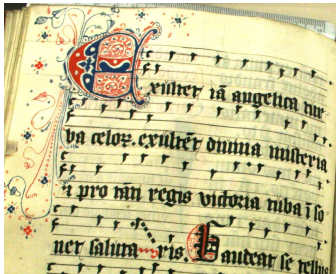 Exultet iā angelica tur
ba celoꝝ. exultēt diuina misteria
⁊ pro tan regis victoria tuba ī so
net saluta ris. Gaudeat se tellus